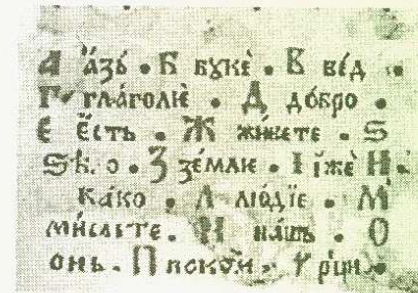 А а҆́зъ • Б бꙋкѝ • В вѣ́д •
Г глаго́лѝ • Д до́бро •
Е Е҆́сть • Ж жи́вете • Ѕ
Ѕѣло • З земли̑ • І і҆́же Н •
ка́ко • Л лю́дїе • М
мы́слете • Н на́шъ • О
онъ • П поко́й • рци •